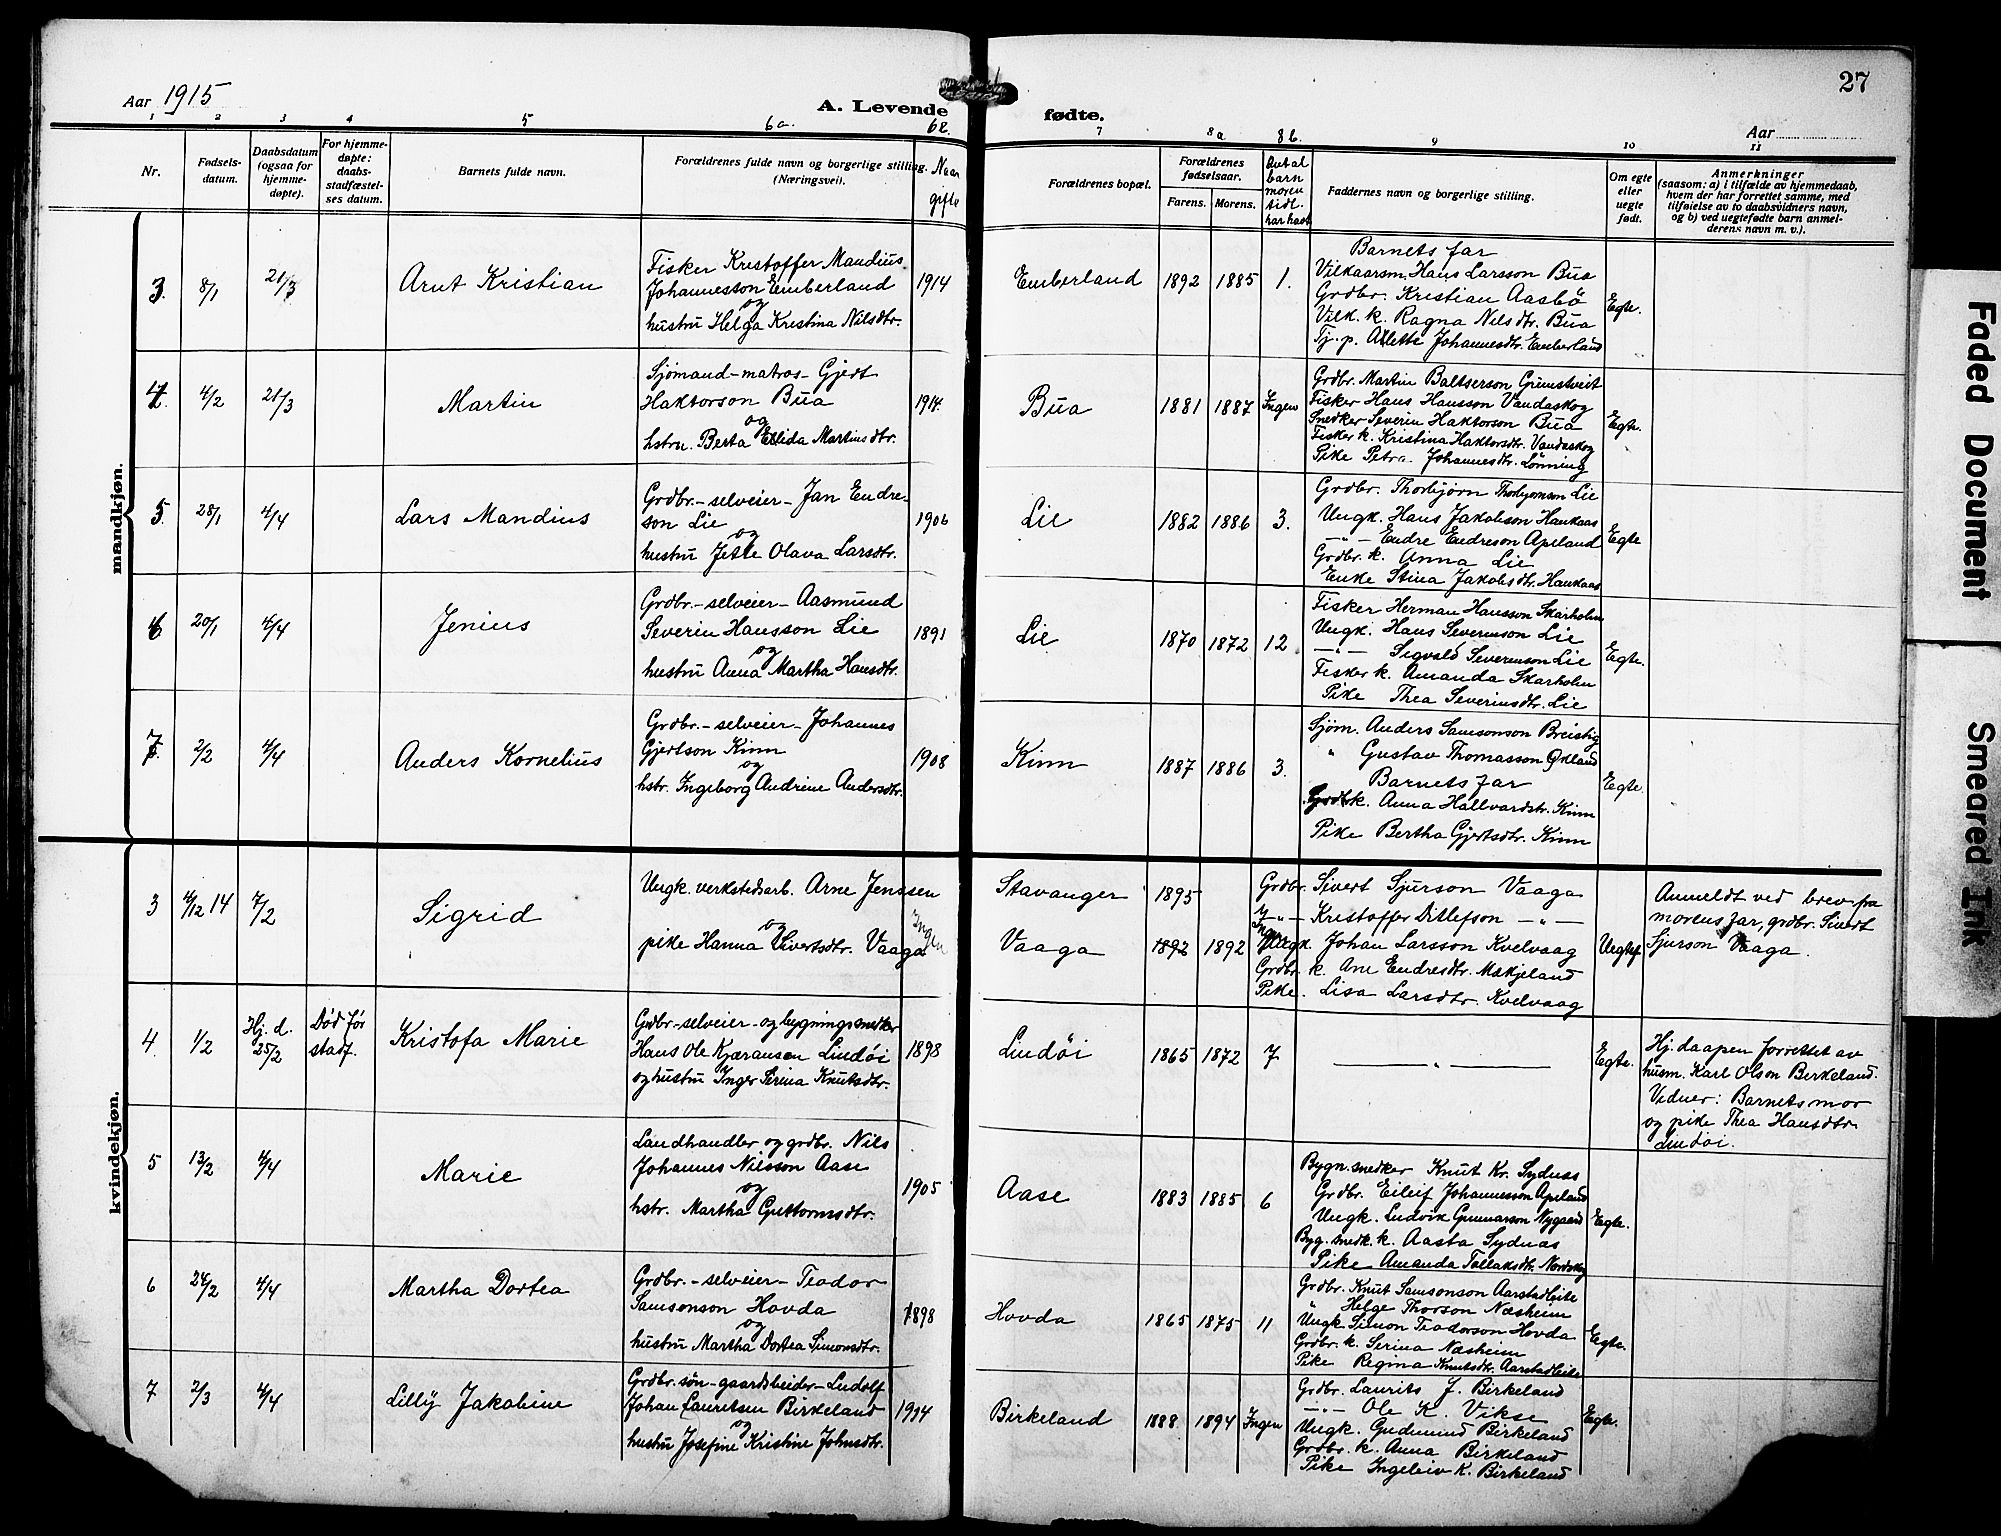 27
Aar 1915
A. Levende
fødte.
Aar
1 2 3 4 5 6a. 6b.
7 8a 8b. 9 10 11
Nr.
Fødsels-
datum.
Daabsdatum
(ogsaa for
hjemme-
døpte).
For hjemme-
døpte:
daabs-
stadfæstel-
ses datum.
Barnets fulde navn.
Forældrenes fulde navn og borgerlige stilling.
(Næringsvei).
Naar
gifte
Forældrenes bopæl.
Forældrenes
fødselsaar.
Farens. Morens.
Antal
barn
moren
tidl.
har havt
Faddernes navn og borgerlige stilling.
Om egte
eller
uegte
født.
Anmerkninger
(saasom: a) i tilfælde av hjemmedaab,
hvem der har forrettet samme, med
tilføielse av to daabsvidners navn,
og b) ved uegtefødte barn anmel-
derens navn m. v.).
mandkjøn.
3. 8/1 21/3 Arnt Kristian
Fisker Kristoffer Mandius
Johannesson Emberland
og
hustru Helga Kristina Nilsdtr.
1914
Emberland 1892 1885 1.
Barnets far
Vilkaarsm. Hans Larsson Bua
Grdbr. Kristian Aasbö
Vilk. k. Ragna Nilsdtr. Bua
Tj. p. Alette Johannesdtr. Emberland
Egte.
4. 4/2 21/3 Martin
Sjömand-matros- Gjert
Haktorson Bua
og
hstru. Berta Ellida Martinsdtr.
1914.
Bua 1881 1887 Ingen
Grdbr. Martin Baltserson Grimstveit
Fisker Hans Hansson Vandaskog
Snedker Severin Haktorson Bua
Fisker k. Kristina Haktorsdtr. Vandaskog
Pike Petra Johannesdtr. Lönning
Egte.
5. 28/1 4/4 Lars Mandius
Grdbr.-selveier- Jan Endre-
son Lie
og
hustru Jette Olava Larsdtr.
1906
Lie 1882 1886 3.
Grdbr. Thorbjørn Thorbjørnson Lie
Ungk. Hans Jakobson Haukaas
-"- Endre Endreson Apeland
Grdbr. k. Anna Lie
Enke Stina Jakobsdtr. Haukaas
Egte
6 20/1 4/4 Jenius
Grdbr.-selveier- Aasmund
Severin Hansson Lie
og
hustru Anna Martha Hansdtr.
1891
Lie 1870 1872 12
Fisker Herman Hansson Skarholm
Ungk. Hans Severinson Lie
-"- Sigvald Severinson Lie
Fisker k. Amanda Skarholm
Pike Thea Severinsdtr. Lie
Egte.
7. 2/2 4/4 Anders Kornelius
Grdbr.-selveier- Johannes
Gjertson Kinn
og
hstr. Ingeborg Andrine Andersdtr.
1908
Kinn 1887 1886 3.
Sjøm. Anders Samsonson Breistig
" Gustav Thomasson Økland
Barnets far
Grdbr. k. Anna Hallvardstr. Kinn
Pike Bertha Gjertsdtr. Kinn
Egte.
kvindekjøn.
3 4/12 14 7/2 Sigrid
Ungk. verkstedsarb. Arne Jenssen
og
pike Hanna Sivertsdtr. Vaaga
Ingen
Stavanger 1895
Vaaga 1892 1892 Ingen
Grdbr. Sivert Sjurson Vaaga
-"- Kristoffer Ditlefson -"-
Ungk. Johan Larsson Kvelvaag
Grdbr. k. Ane Endresdtr. Mækjeland
Pike. Lisa Larsdtr. Kvelvaag
Uegte
Anmeldt ved brev fra
morens far, grdbr. Sivert
Sjurson Vaaga.
4. 1/2 Hj. d.
25/2
Død før
stadf.
Kristofa Marie
Grdbr-selveier-og bygningssnedker
Hans Ole Kjæransen Lindøi
og hustru Inger Serina Knutsdtr.
1898
Lindøi 1865 1872 7
— " —
Egte.
Hj. daapen forrettet av
husm. Karl Olson Birkeland.
Vidner: Barnets mor
og pike Thea Hansdtr.
Lindøi.
5 13/2 4/4 Marie
Landhandler og grdbr. Nils
Johannes Nilsson Aase
og
hstr. Martha Guttormsdtr.
1905
Aase 1883 1885 6
Bygn. snedker Knut Kr. Sydnæs
Grdbr. Eileif Johannesson Apeland
Ungk. Ludvik Gunnarson Nygaard
Byg. snedk. k. Aasta Sydnæs
Pike Amanda Tollaksdtr. Nordskog
Egte.
6 24/2 4/4 Martha Dortea
Grdbr.-selveier- Teodor
Samsonson Hovda
og
hustru Martha Dortea Simonsdtr.
1898
Hovda 1865 1875 11
Grdbr. Knut Samsonson Aarstadleite
" Helge Thorson Næsheim
Ungk. Simon Teodorson Hovda
Grdbr. k. Serina Næsheim
Pike Regina Knutsdtr. Aarstadleite
Egte.
7 2/3 4/4 Lilly Jakobine
Grdbr. søn-gaardsbeider-Ludolf
Johan Lauritsen Birkeland
og
hustru Josefine Kristine Johnsdtr.
1914
Birkeland 1888 1894 Ingen
Grdbr. Laurits J. Birkeland
-"- Ole K. Vikse
Ungk. Gudmund Birkeland
Grdbr. k. Anna Birkeland
Pike Ingeleiv K. Birkeland
Egte.
Faded Document
Smeared Ink